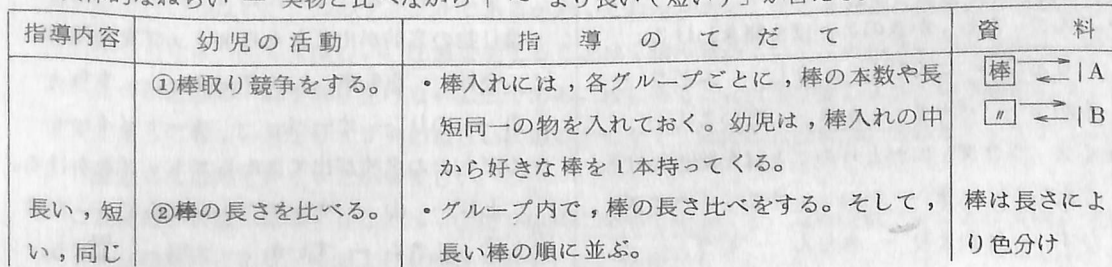 指導内容 幼児の活動 指導のてだて 資料
①棒取り競争をする。 ・棒入れには，各グループごとに，棒の本数や長 棒 A
短同一の物を入れておく。幼児は，棒入れの中 〃 B
から好きな棒を1本持ってくる。
長い，短 ②棒の長さを比べる。 ・グループ内で，棒の長さ比べをする。そして， 棒は長さによ
い，同じ 長い棒の順に並ぶ。 り色分け